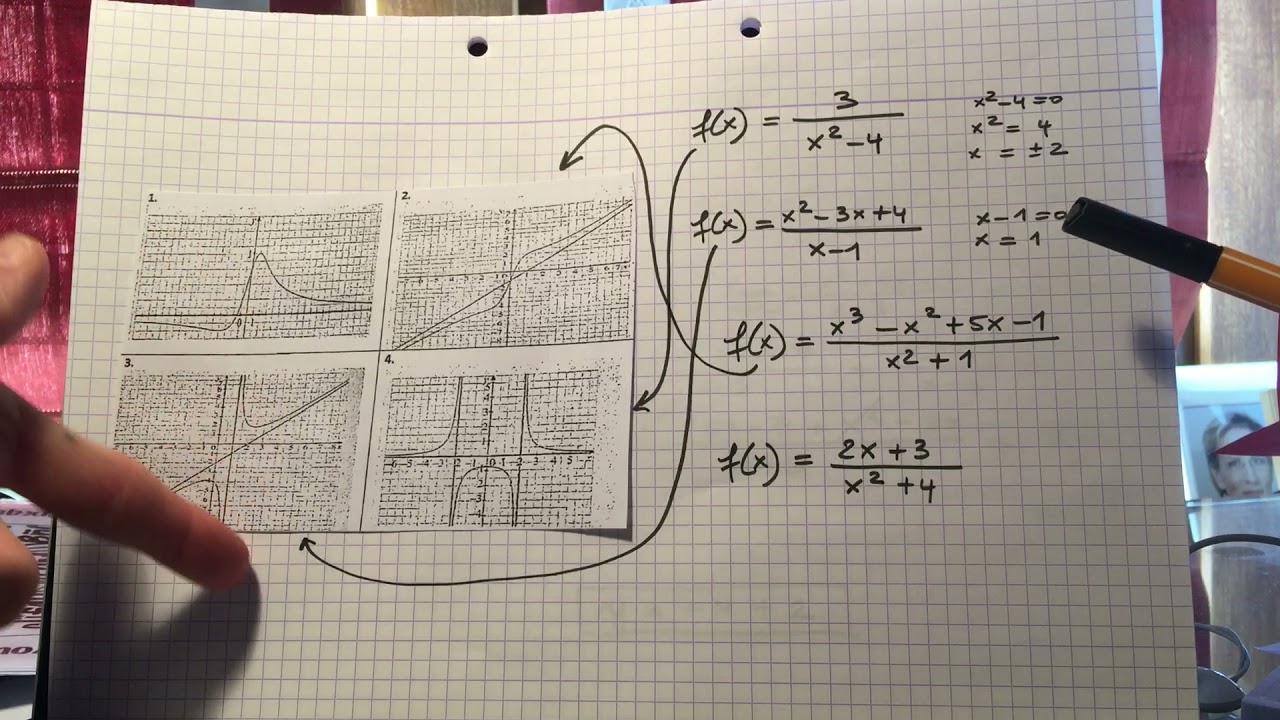 1.
2.
3.
4.
-6 -5 -4 -3 -2 -1 0 1 2 3 4 5
f(x) = 3 / (x² – 4)
x² – 4 = 0
x² = 4
x = ± 2
f(x) = (x² – 3x + 4) / (x – 1)
x – 1 = 0
x = 1
f(x) = (x³ – x² + 5x – 1) / (x² + 1)
f(x) = (2x + 3) / (x² + 4)